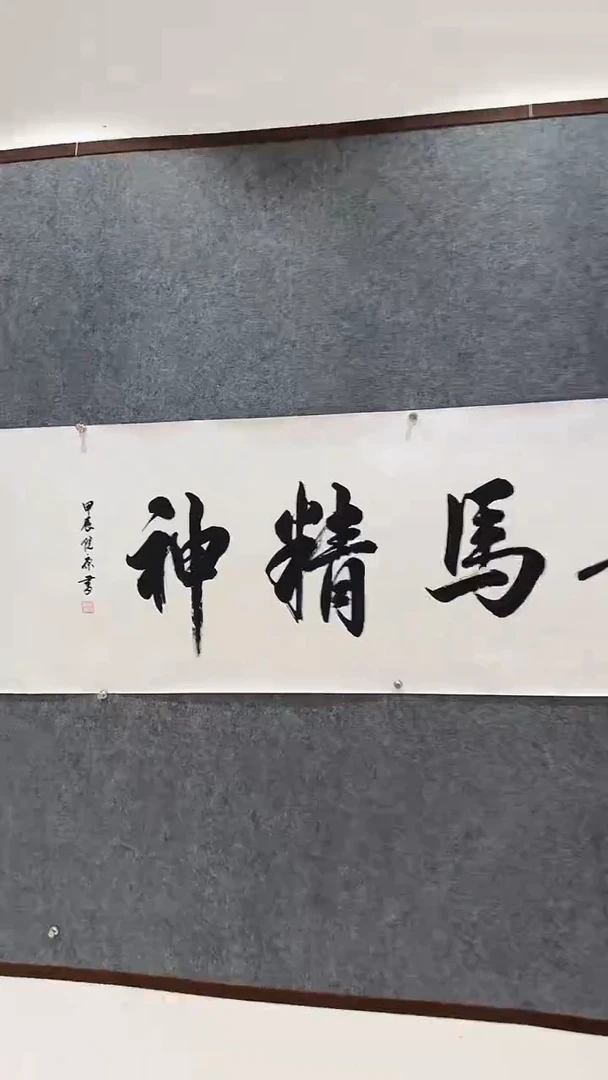 馬精神
甲辰
書